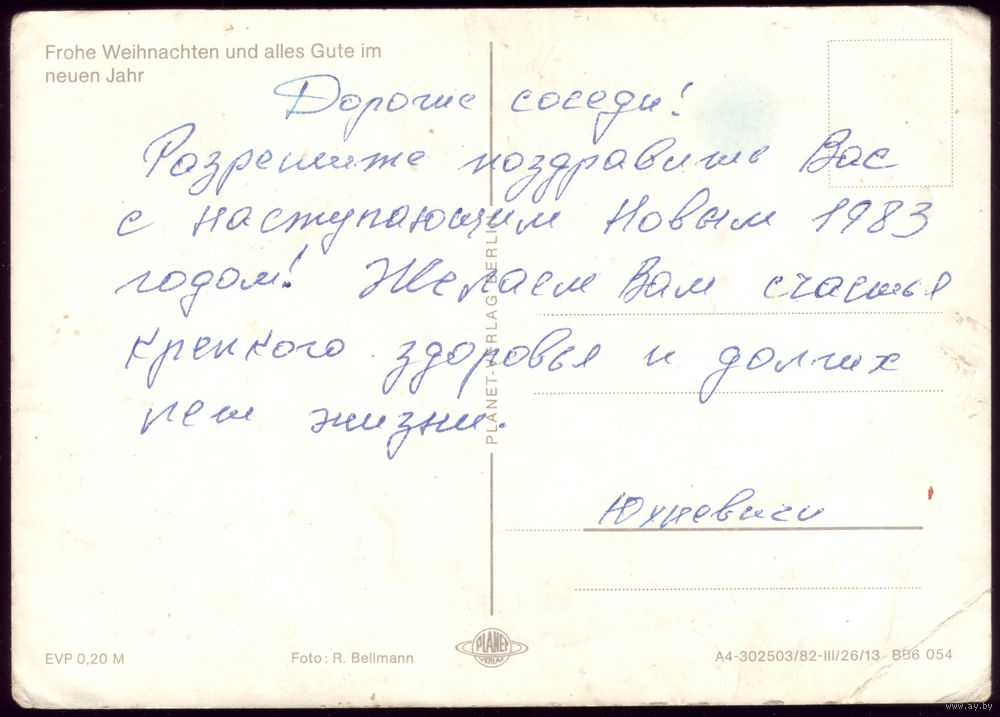 Frohe Weihnachten und alles Gute im
neuen Jahr
Дорогие соседи!
Разрешите поздравить Вас
с наступающим Новым 1983
годом! Желаем Вам счастья
крепкого здоровья и долгих
лет жизни.
Юхневичи
PLANET-VERLAG BERLIN
EVP 0,20 M
Foto: R. Bellmann
PLANET
VERLAG
A4-302503/82-III/26/13 BB6 054
www.ay.by